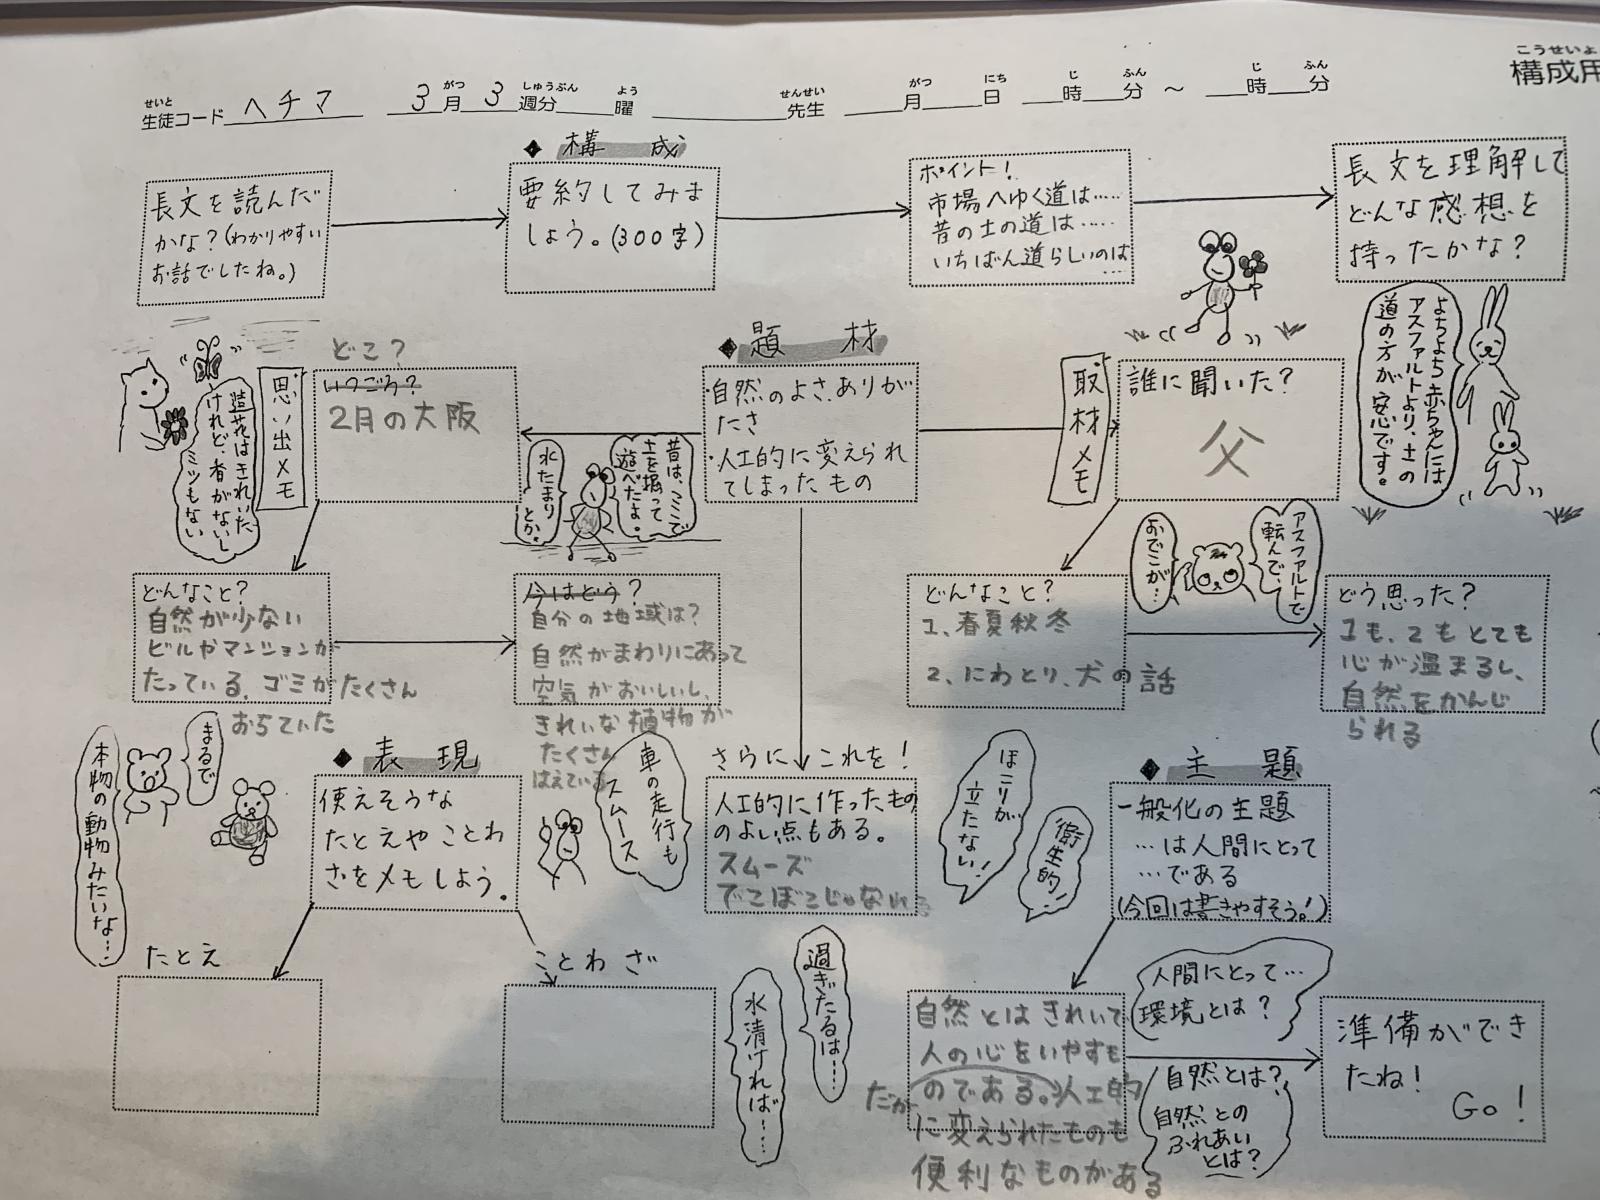 こうせいよ
構成用
せいと
生徒コード ヘチマ 3月 3週分 曜 先生 月 日 時 分 ～ 時 分
がつ しゅうぶん よう せんせい がつ にち じ ふん じ ふん
◆構 成
長文を読んだ
かな?(わかりやすい
お話でしたね。)
要約してみま
しょう。(300字)
ポイント!
市場へゆく道は……
昔の土の道は……
いちばん道らしいのは
…
長文を理解して
どんな感想を
持ったかな?
よちよち赤ちゃんには
アスファルトより、土の
道の方が安心です。
◆題 材
・自然のよさ、ありが
たさ
・人工的に変えられ
てしまったもの
どこ?
いつごろ?
2月の大阪
思い出メモ
造花はきれいだ
けれど、香がないし
ミツもない
昔は、ここで
土を掘って
遊べたよ。
水たまり
とか。
取材メモ
誰に聞いた?
父
アスファルトで
転んで、
おでこが…
どんなこと?
自然が少ない
ビルやマンションが
たっている、ゴミがたくさん
おちていた
今はどう?
自分の地域は?
自然がまわりにあって
空気がおいしいし、
きれいな植物が
たくさん
はえている
どんなこと?
1、春夏秋冬
2、にわとり、犬の話
どう思った?
1も、2もとても
心が温まるし、
自然をかんじ
られる
◆表 現
使えそうな
たとえやことわ
ざをメモしよう。
まるで
本物の動物みたいな…
たとえ
ことわざ
過ぎたるは……
水清ければ……
さらにこれを!
人工的に作ったもの
のよい点もある。
スムーズ
でこぼこじゃなれる
車の走行も
スムース
ほこりが
立たない!
衛生的!
◆主 題
一般化の主題
…は人間にとって
…である
(今回は書きやすそう!)
自然とはきれいで
人の心をいやすも
のである。人工的
だが
に変えられたものも
便利なものがある
人間にとって…
環境とは?
自然とは?
自然との
ふれあい
とは?
準備ができ
たね!
Go!